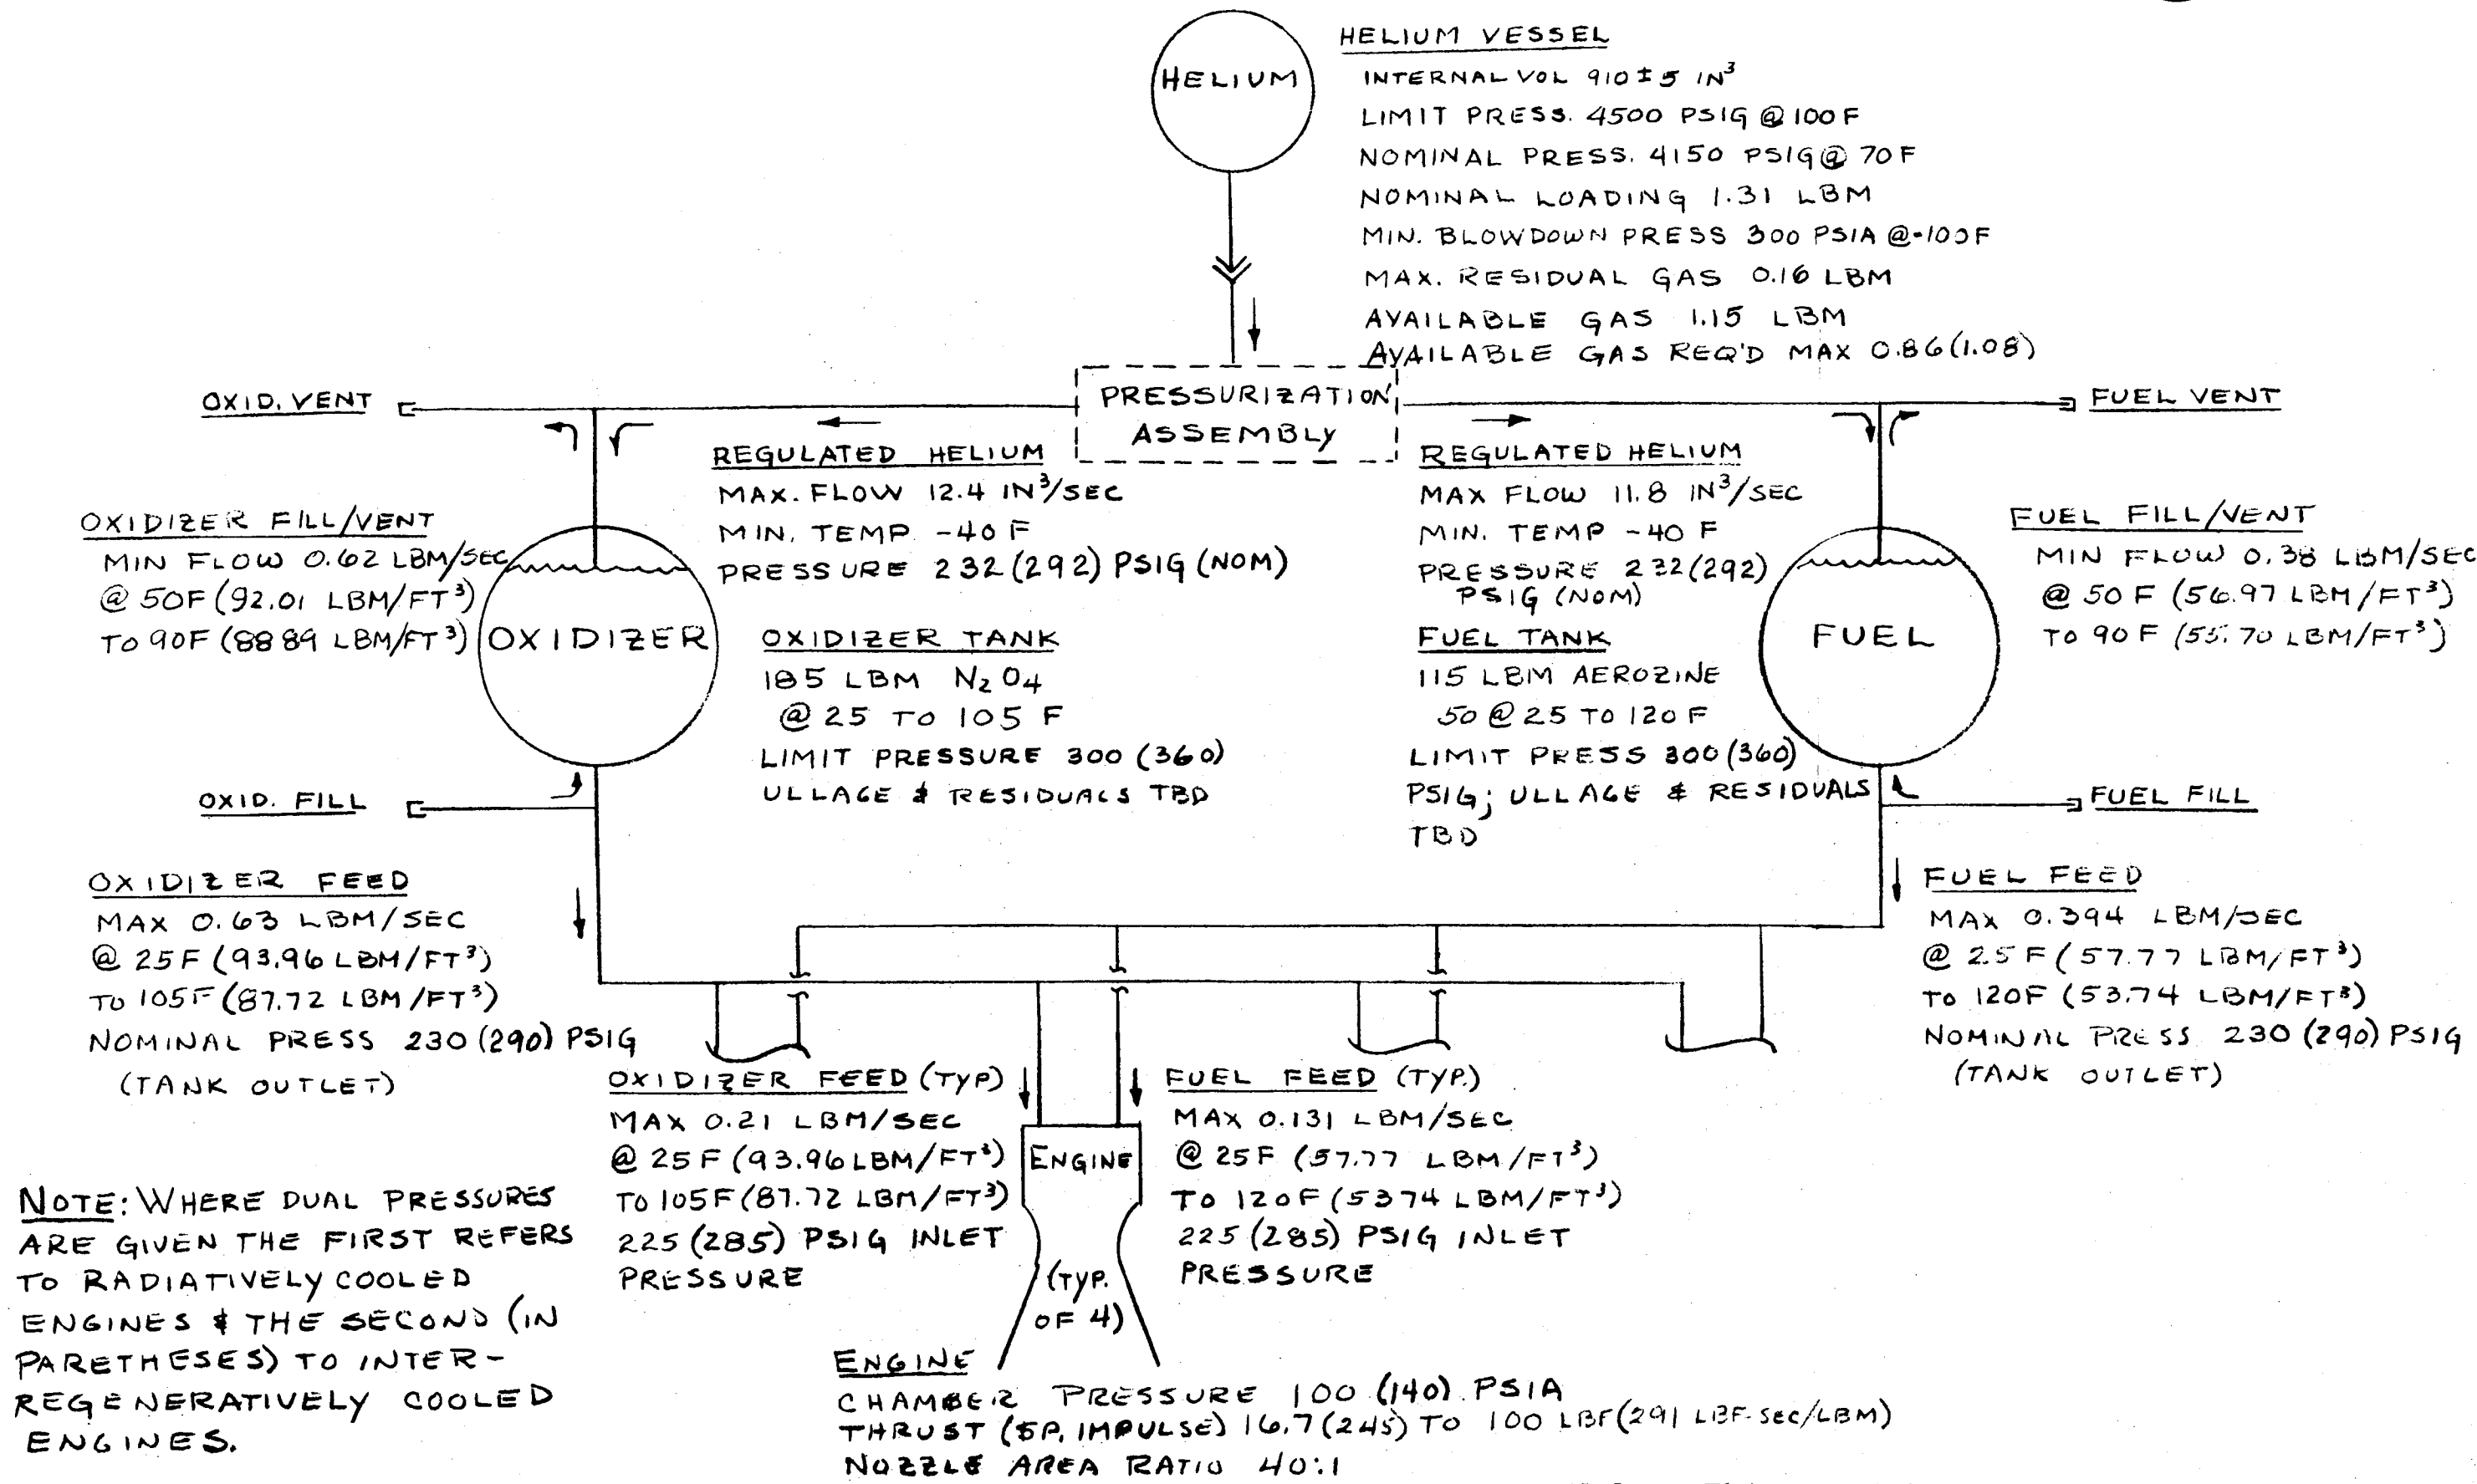 HELIUM
HELIUM VESSEL
INTERNAL VOL 910 ± 5 IN³
LIMIT PRESS. 4500 PSIG @ 100 F
NOMINAL PRESS. 4150 PSIG @ 70 F
NOMINAL LOADING 1.31 LBM
MIN. BLOWDOWN PRESS 300 PSIA @ -100F
MAX. RESIDUAL GAS 0.16 LBM
AVAILABLE GAS 1.15 LBM
AVAILABLE GAS REQ'D MAX 0.86 (1.08)
OXID. VENT
PRESSURIZATION
ASSEMBLY
FUEL VENT
REGULATED HELIUM
MAX. FLOW 12.4 IN³/SEC
MIN. TEMP. -40 F
PRESSURE 232 (292) PSIG (NOM)
REGULATED HELIUM
MAX FLOW 11.8 IN³/SEC
MIN. TEMP -40 F
PRESSURE 232 (292)
PSIG (NOM)
OXIDIZER FILL/VENT
MIN FLOW 0.62 LBM/SEC
@ 50F (92.01 LBM/FT³)
TO 90F (88 89 LBM/FT³)
OXIDIZER
FUEL FILL/VENT
MIN FLOW 0.38 LBM/SEC
@ 50 F (56.97 LBM/FT³)
TO 90 F (55.70 LBM/FT³)
FUEL
OXIDIZER TANK
185 LBM N₂O₄
@ 25 TO 105 F
LIMIT PRESSURE 300 (360)
ULLAGE & RESIDUALS TBD
FUEL TANK
115 LBM AEROZINE
50 @ 25 TO 120 F
LIMIT PRESS 300 (360)
PSIG; ULLAGE & RESIDUALS
TBD
OXID. FILL
FUEL FILL
OXIDIZER FEED
MAX 0.63 LBM/SEC
@ 25F (93.96 LBM/FT³)
TO 105F (87.72 LBM/FT³)
NOMINAL PRESS 230 (290) PSIG
(TANK OUTLET)
FUEL FEED
MAX 0.394 LBM/SEC
@ 25 F (57.77 LBM/FT³)
TO 120F (53.74 LBM/FT³)
NOMINAL PRESS 230 (290) PSIG
(TANK OUTLET)
OXIDIZER FEED (TYP)
MAX 0.21 LBM/SEC
@ 25 F (93.96 LBM/FT³)
TO 105F (87.72 LBM/FT³)
225 (285) PSIG INLET
PRESSURE
FUEL FEED (TYP.)
MAX 0.131 LBM/SEC
@ 25F (57.77 LBM/FT³)
TO 120F (53 74 LBM/FT³)
225 (285) PSIG INLET
PRESSURE
ENGINE
(TYP.
OF 4)
NOTE: WHERE DUAL PRESSURES
ARE GIVEN THE FIRST REFERS
TO RADIATIVELY COOLED
ENGINES & THE SECOND (IN
PARETHESES) TO INTER-
REGENERATIVELY COOLED
ENGINES.
ENGINE
CHAMBER PRESSURE 100 (140) PSIA
THRUST (SP. IMPULSE) 16.7 (245) TO 100 LBF (291 LBF-SEC/LBM)
NOZZLE AREA RATIO 40:1